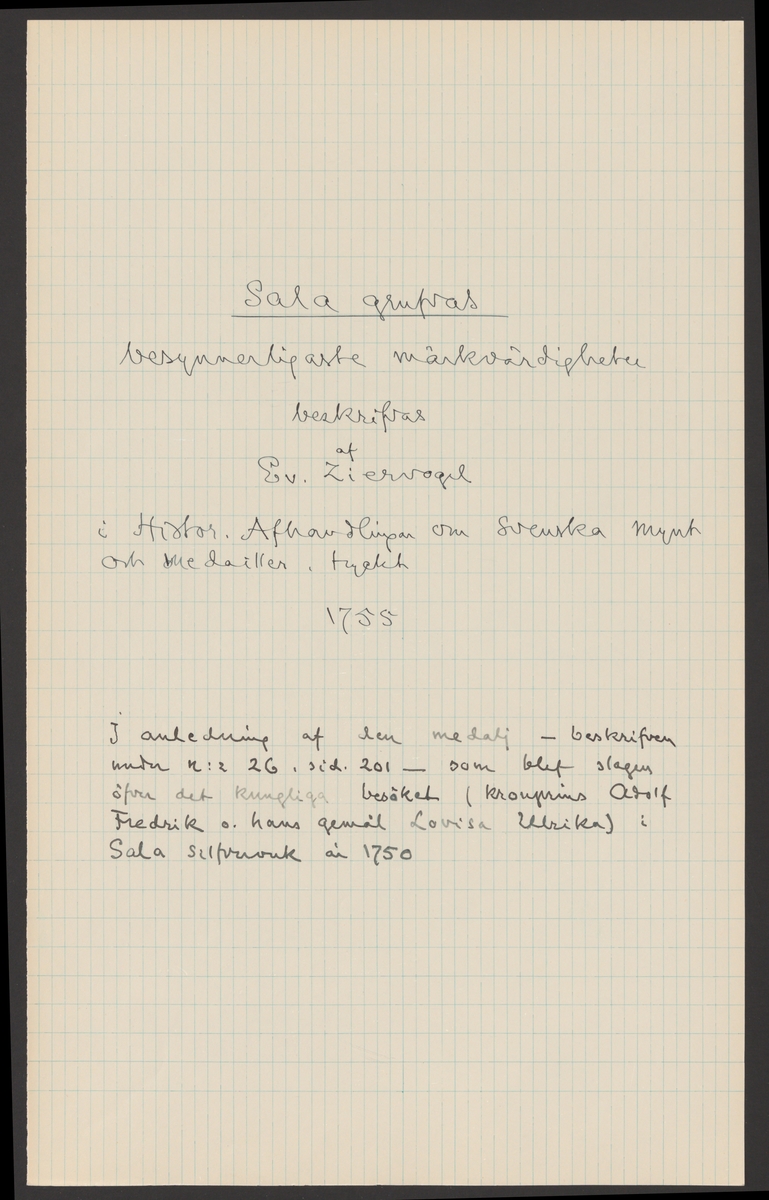 Sala grufvas
besynnerligaste märkvärdigheter
beskrifvas
af
Ev. Ziervogel
i Histor. Afhandlingar om Svenska Mynt
och Medailler, tryckt
1755
I anledning af den medalj – beskrifven
under n:r 26, sid. 201 – som blef slagen
öfver det kungliga besöket (kronprins Adolf
Fredrik o. hans gemål Lovisa Ulrika) i
Sala silfververk år 1750